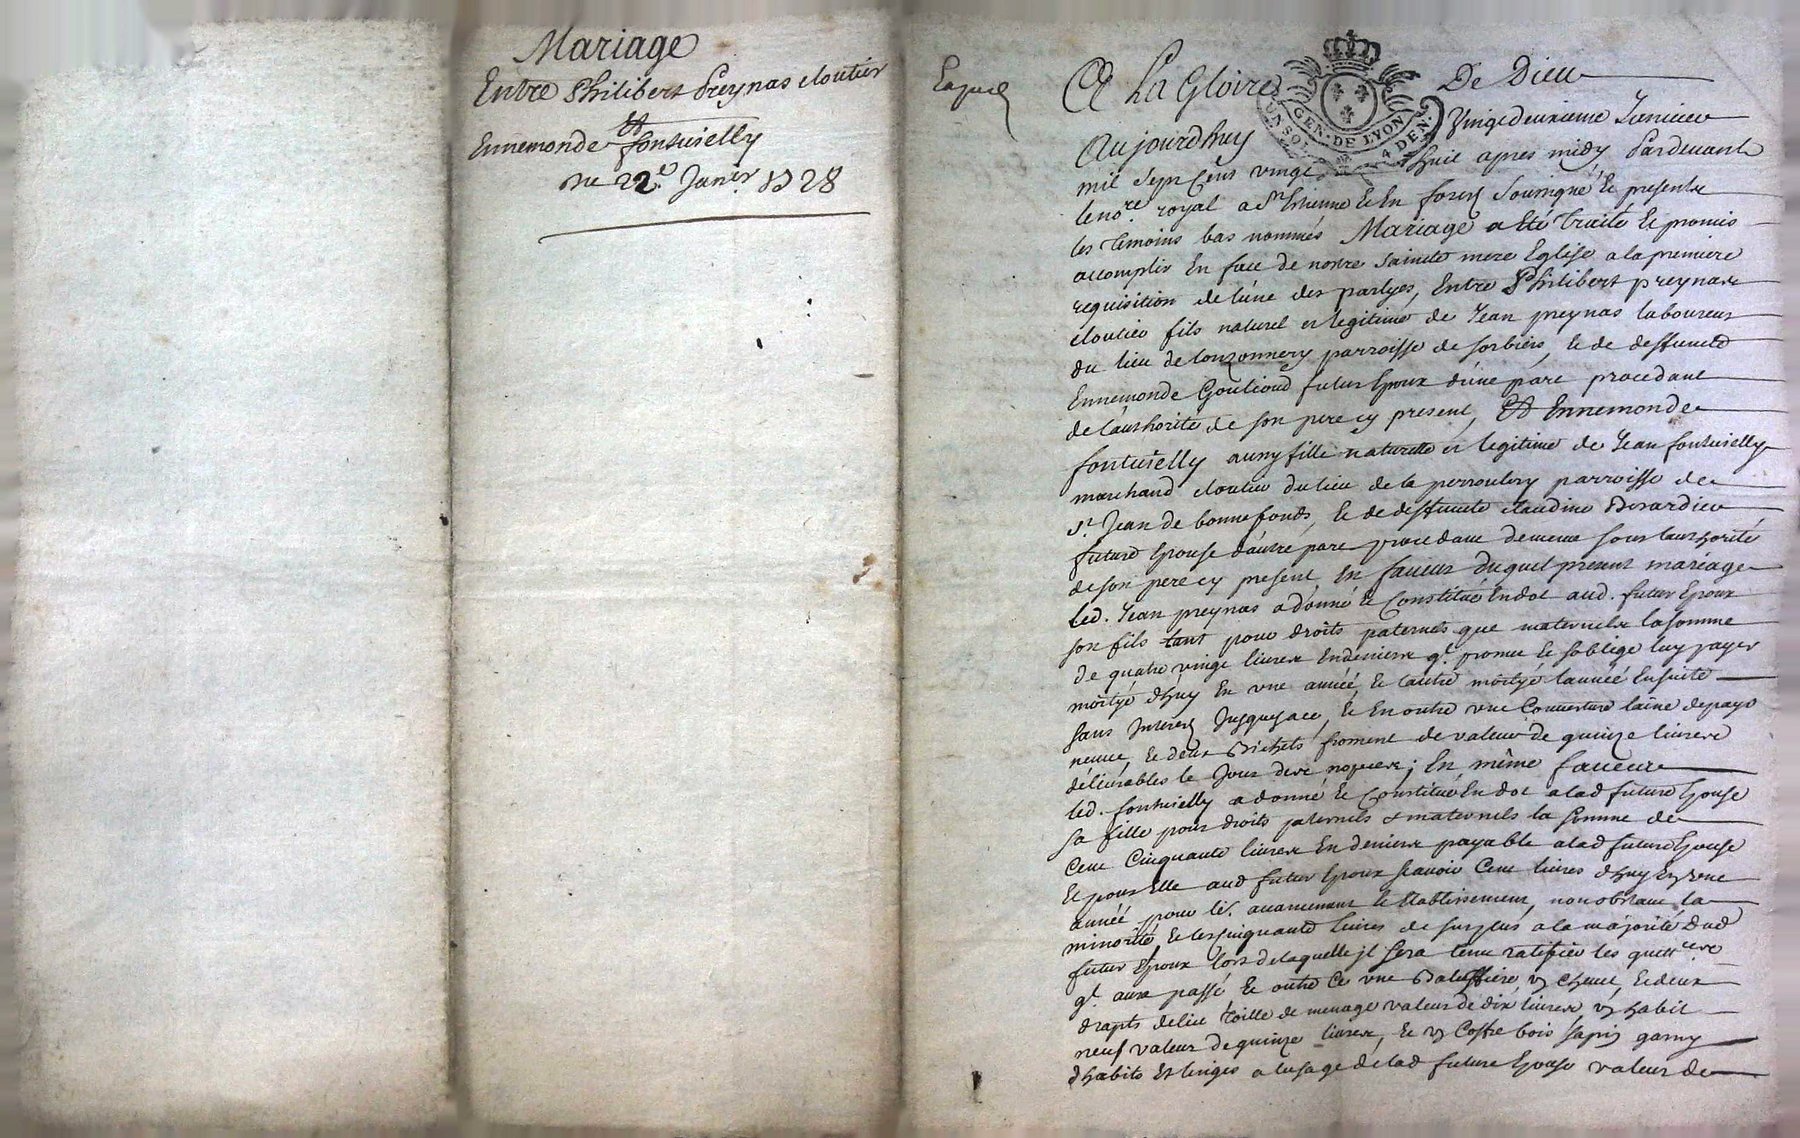 Mariage
Entre Philibert Preynas cloutier
Et
Ennemonde fontvielly
Du 22e. Janer. 1728
A La Gloire De Dieu
GEN. DE LYON
UN SOL 4 DEN.
Aujourdhuy Vingt deuxieme Janvier
mil sept Cens vingt huit apres midy Pardevant
le nore. royal a St Etienne Et En forez soussigné Et presents
les temoins bas nommés Mariage a Eté traité Et promis
accomplir En face de nostre sainte mere Eglise a la premiere
requisition de l'une des partyes, Entre Philibert preynas
cloutier fils naturel et legitime de Jean preynas laboureur
du lieu de parroisse de sorbiers, Et de deffuncte
Ennemonde futur Epoux d'une part procedant
de l'authorité de son pere cy present, Et Ennemonde
fontvielly aussy fille naturelle et legitime de Jean fontvielly
marchand cloutier du lieu de la parroisse de
St. Jean de bonnefonds, Et de deffuncte claudine Berardier
future Epouse d'autre part procedant de meme sous l'authorité
de son pere cy present, En faveur duquel present mariage
led. Jean preynas a donné Et Constitué En dot aud. futur Epoux
son fils tant pour droits paternels que maternels la somme
de quatre vingt livres En deniers ql. promet Et s'oblige luy payer
moityé d'huy En une année, Et l'autre moityé l'année Ensuite
sans Interest Jusques a ce, Et En outre une Couverture laine de pays
neuve, Et deux Bichets froment de valeur de quinze livres
délivrables le Jour des nopces; En même faveur
led. fontvielly a donné Et Constitué En dot a lad future Epouse
sa fille pour droits paternels & maternels la somme de
Cent Cinquante livres En deniers payable a lad future Epouse
Et pour Elle aud futur Epoux scavoir Cent livres d'huy En une
année pour leur avancement Et Etablissement, nonobstant la
minorité, Et les cinquante livres de surplus a la majorité dud
futur Epoux lors de laquelle il sera tenu ratifier les quittces
ql. aura passé Et outre Ce une un Et deux
drapts de lit toille de menage valeur de dix livres un habit
neuf valeur de quinze livres, Et un Coffre bois sapin garny
d'habits Et linges a lusage de lad future Epouse valeur de